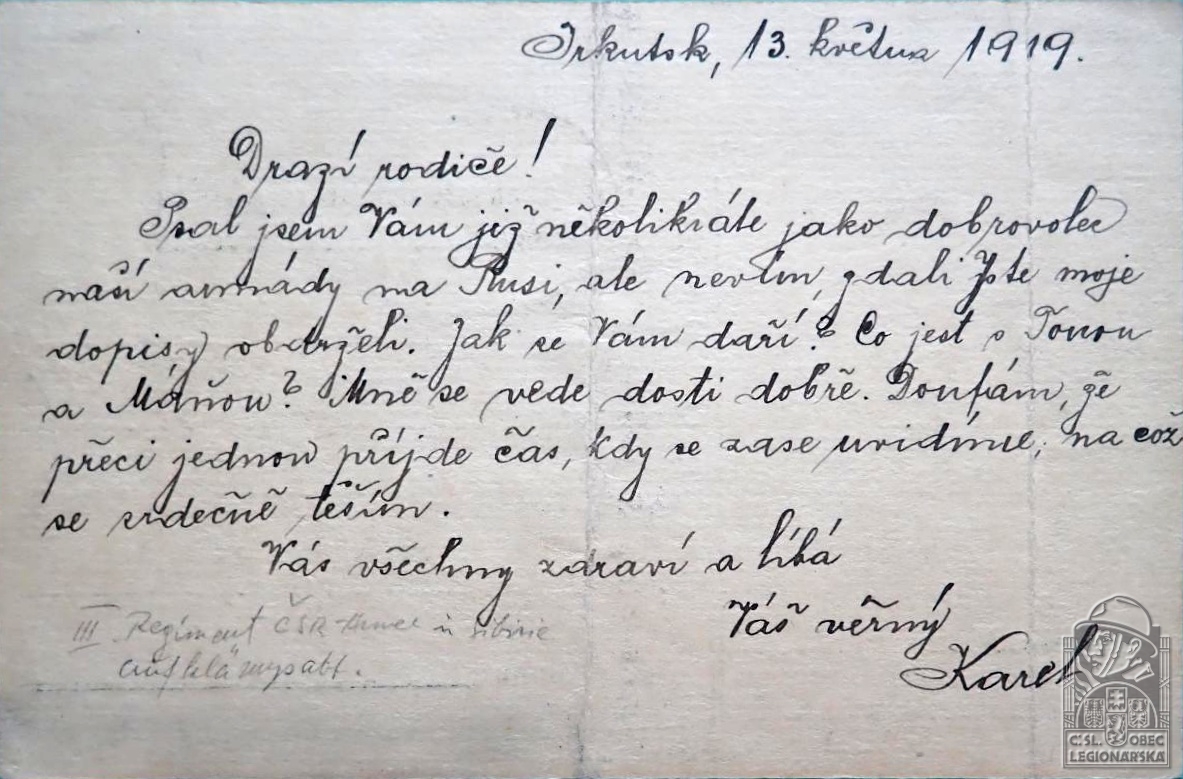 Irkutsk, 13. května 1919.
Drazí rodiče!
Psal jsem Vám již několikráte jako dobrovolec
naší armády na Rusi, ale nevím, zdali Jste moje
dopisy obdrželi. Jak se Vám daří? Co jest s Tonou
a Máňou? Mně se vede dosti dobře. Doufám, že
přeci jednou příjde čas, kdy se zase uvidíme, na což
se srdečně těším.
Vás všechny zdraví a líbá
Váš věrný
Karel
III Regiment ČSR Armee in Sibirie
Aufklärungsabt.
ČSL. OBEC
LEGIONÁŘSKÁ